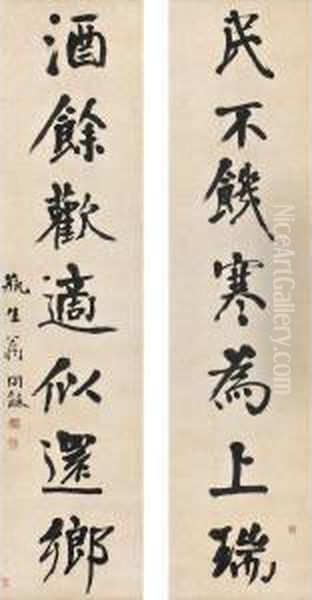 民不饑寒為上瑞
酒餘歡適似還鄉
瓶生翁同龢
NiceArtGallery.com